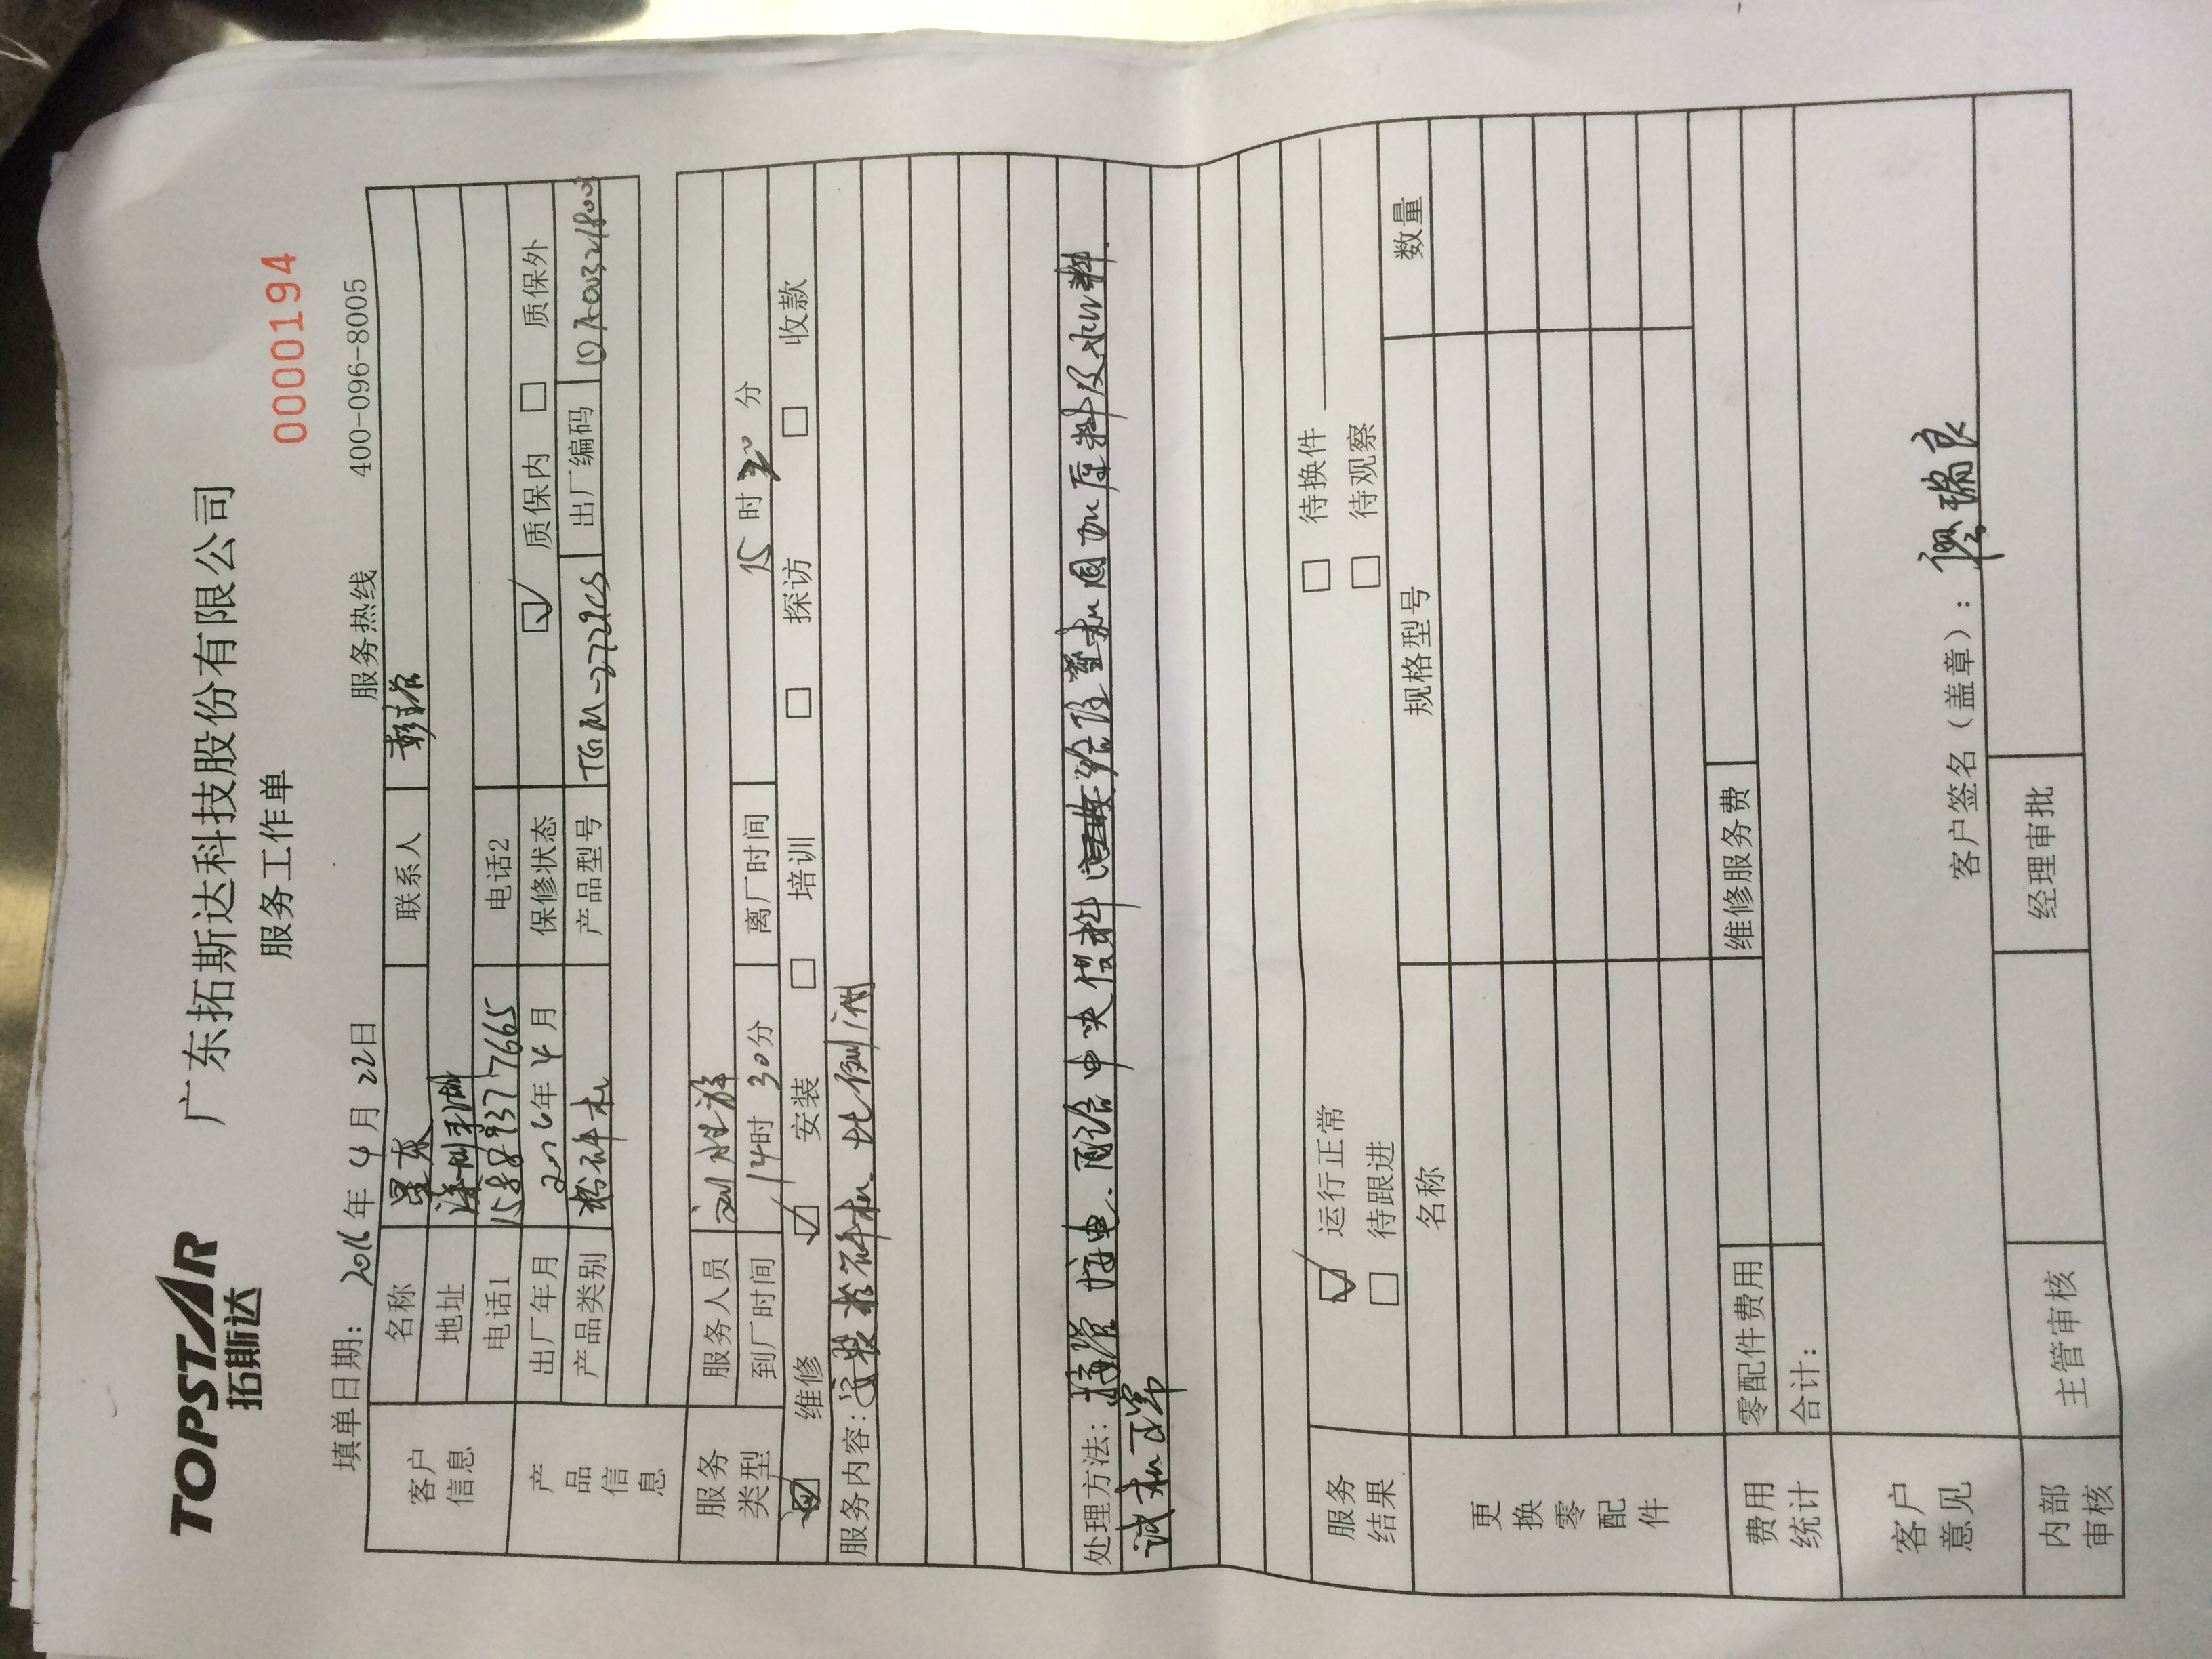 TOPSTAR
拓斯达
广东拓斯达科技股份有限公司
服务工作单
0000194
填单日期: 2016年4月22日
服务热线 400-096-8005
客户信息
名称 星友 联系人
地址 深圳
电话1 15889377665 电话2
产品信息
出厂年月 2016年4月 保修状态 ☑ 质保内 □ 质保外
产品类别 粉碎机 产品型号 TGM-2772CS 出厂编码
服务类型
服务人员 刘胜游
到厂时间 14时30分 离厂时间 15时20分
维修 ☑ 安装 □ 培训 □ 探访 □ 收款
服务内容: 安装粉碎机、比例阀
处理方法: 接管 接电、配合中央供料 原料及水口料
试机正常
服务结果
☑ 运行正常 □ 待换件
□ 待跟进 □ 待观察
更换零配件
名称 规格型号 数量
费用统计
零配件费用 维修服务费
合计:
客户意见
客户签名(盖章): 廖瑞良
内部审核
主管审核 经理审批